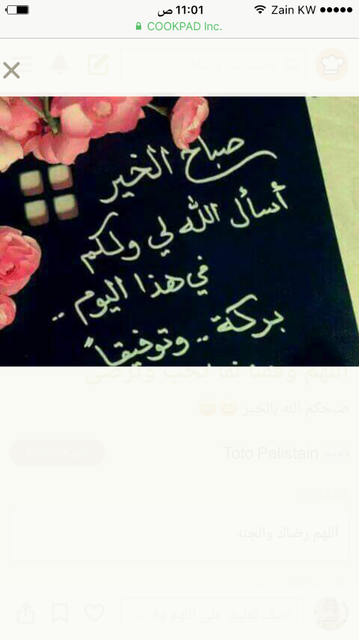 11:01 ص
Zain KW
COOKPAD Inc.
صباح الخير
أسأل الله لي ولكم
في هذا اليوم ..
بركة .. وتوفيقاً
صبحكم الله بالخير
Toto Palistain
اللهم رضاك والجنه